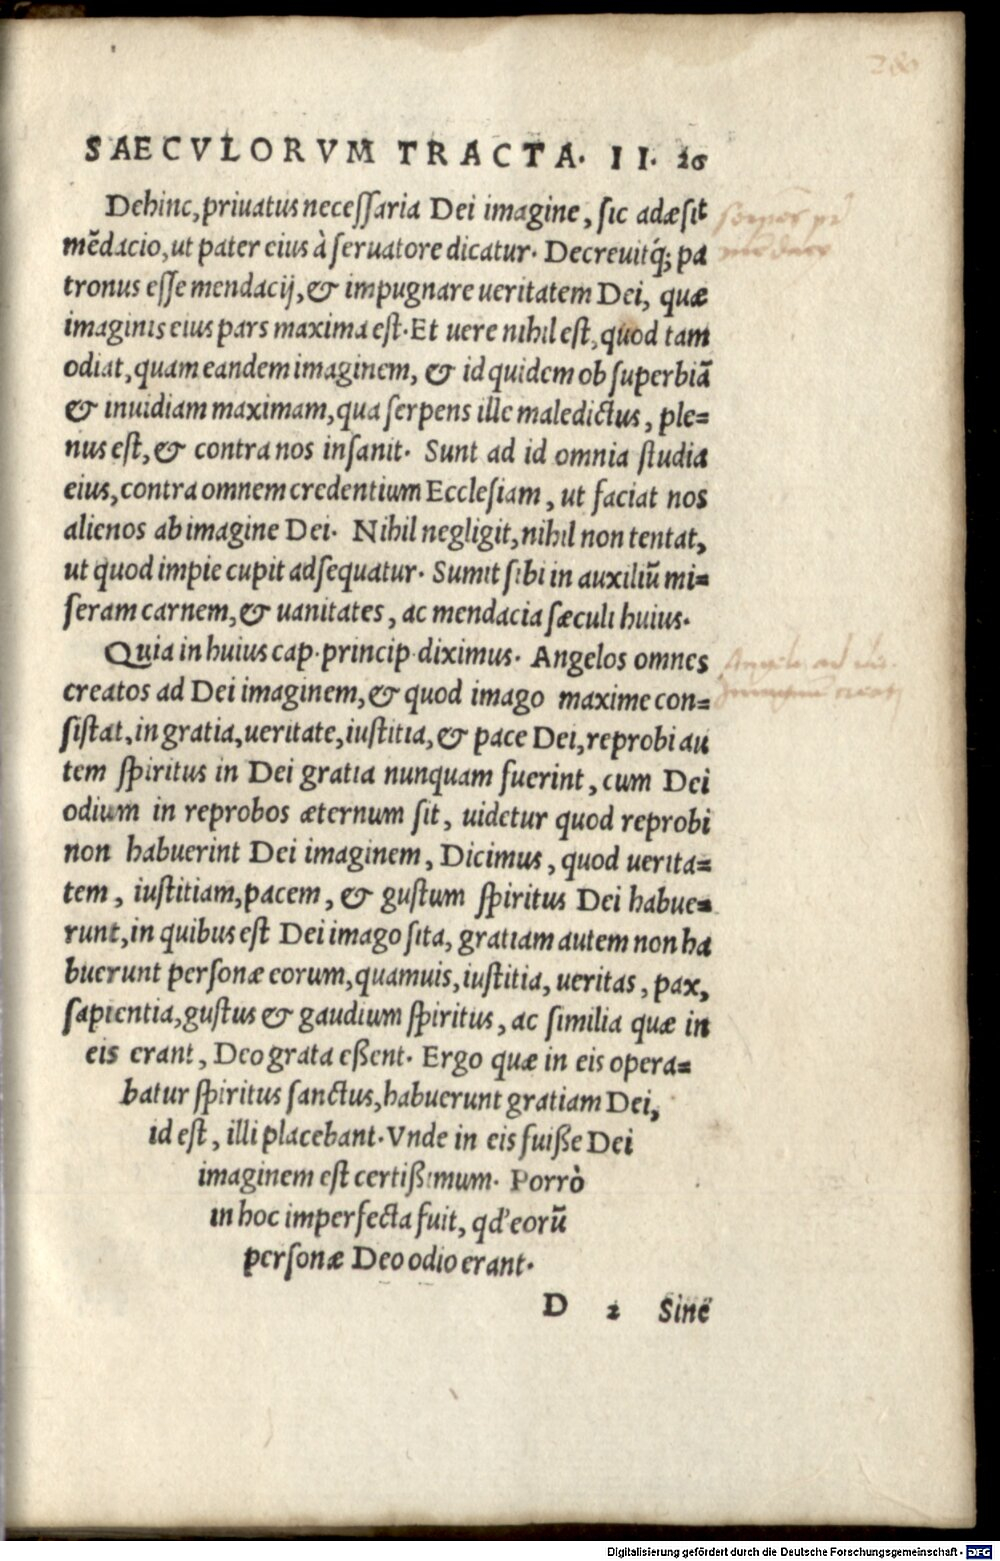 SAECVLORVM TRACTA. II. 26
Dehinc, priuatus necessaria Dei imagine, sic adæsit
mẽdacio, ut pater eius à seruatore dicatur. Decreuitq́; pa
tronus esse mendacij, & impugnare ueritatem Dei, quæ
imaginis eius pars maxima est. Et uere nihil est, quod tam
odiat, quam eandem imaginem, & id quidem ob superbiã
& inuidiam maximam, qua serpens ille maledictus, ple=
nus est, & contra nos insanit. Sunt ad id omnia studia
eius, contra omnem credentium Ecclesiam, ut faciat nos
alienos ab imagine Dei. Nihil negligit, nihil non tentat,
ut quod impie cupit adsequatur. Sumit sibi in auxiliũ mi=
seram carnem, & uanitates, ac mendacia sæculi huius.
Quia in huius cap. princip. diximus. Angelos omnes
creatos ad Dei imaginem, & quod imago maxime con=
sistat, in gratia, ueritate, iustitia, & pace Dei, reprobi au
tem spiritus in Dei gratia nunquam fuerint, cum Dei
odium in reprobos æternum sit, uidetur quod reprobi
non habuerint Dei imaginem, Dicimus, quod uerita=
tem, iustitiam, pacem, & gustum spiritus Dei habue=
runt, in quibus est Dei imago sita, gratiam autem non ha
buerunt personæ eorum, quamuis, iustitia, ueritas, pax,
sapientia, gustus & gaudium spiritus, ac similia quæ in
eis erant, Deo grata eßent. Ergo quæ in eis opera=
batur spiritus sanctus, habuerunt gratiam Dei,
id est, illi placebant. Vnde in eis fuiße Dei
imaginem est certißimum. Porrò
in hoc imperfecta fuit, qd' eorũ
personæ Deo odio erant.
D 2 Sine
Digitalisierung gefördert durch die Deutsche Forschungsgemeinschaft - DFG